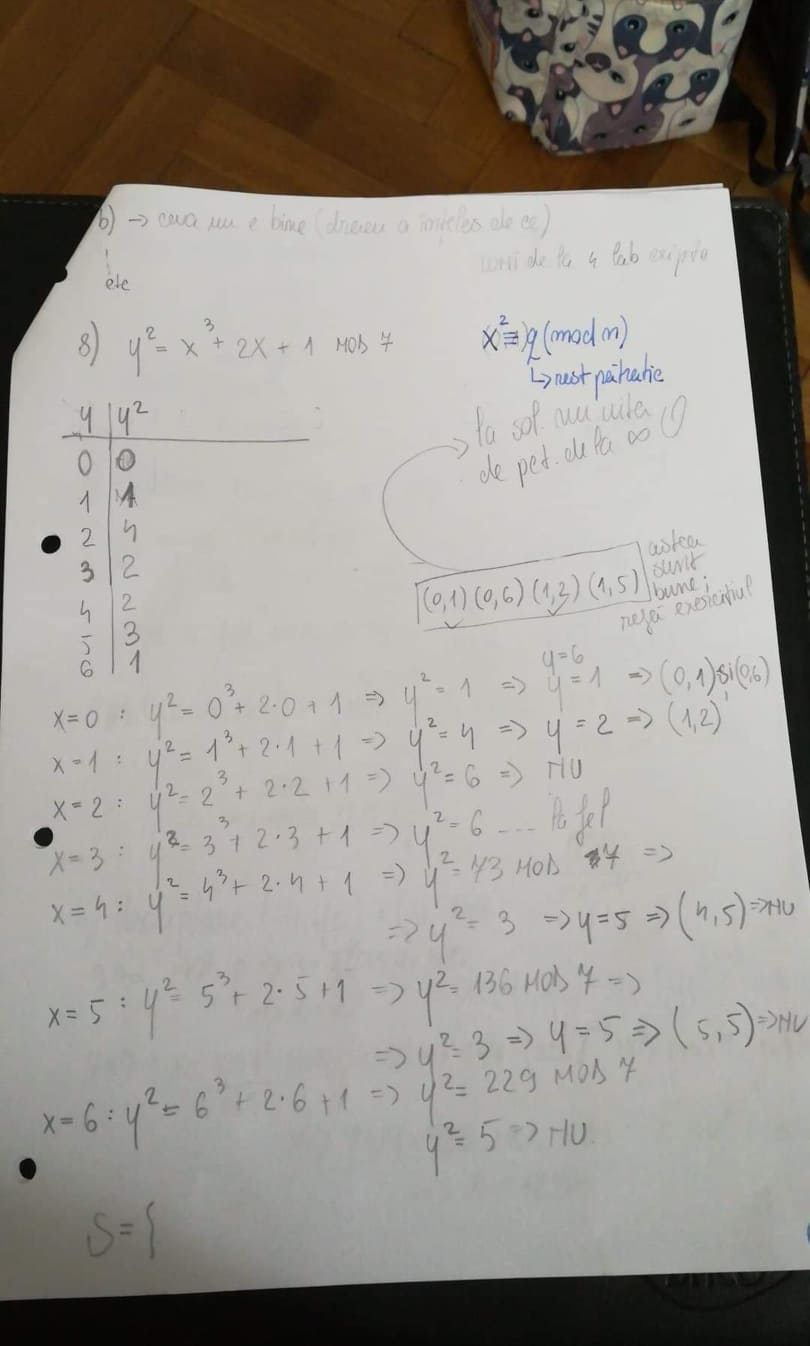 b) → ceva nu e bine (drew a înțeles de ce)
etc
luni de la 4 lab cripto
8) y² = x³ + 2x + 1 MOD 7
x² ≡ q (mod n)
↳ rest pătratic
la sol. nu uita
de pct. de la ∞
y | y²
0 | 0
1 | 1
2 | 4
3 | 2
4 | 2
5 | 3
6 | 1
(0,1) (0,6) (1,2) (1,5)
astea
sunt
bune;
refă exercițiul
y=6
x=0 : y² = 0³ + 2·0 + 1 => y² = 1 => y = 1 => (0,1) și (0,6)
x=1 : y² = 1³ + 2·1 + 1 => y² = 4 => y = 2 => (1,2)
x=2 : y² = 2³ + 2·2 + 1 => y² = 6 => NU
x=3 : y² = 3³ + 2·3 + 1 => y² = 6 ... la fel
x=4 : y² = 4³ + 2·4 + 1 => y² = 73 MOD 7 =>
=> y² = 3 => y = 5 => (4,5) => NU
x=5 : y² = 5³ + 2·5 + 1 => y² = 136 MOD 7 =>
=> y² = 3 => y = 5 => (5,5) => NU
x=6 : y² = 6³ + 2·6 + 1 => y² = 229 MOD 7
y² = 5 => NU
S = {